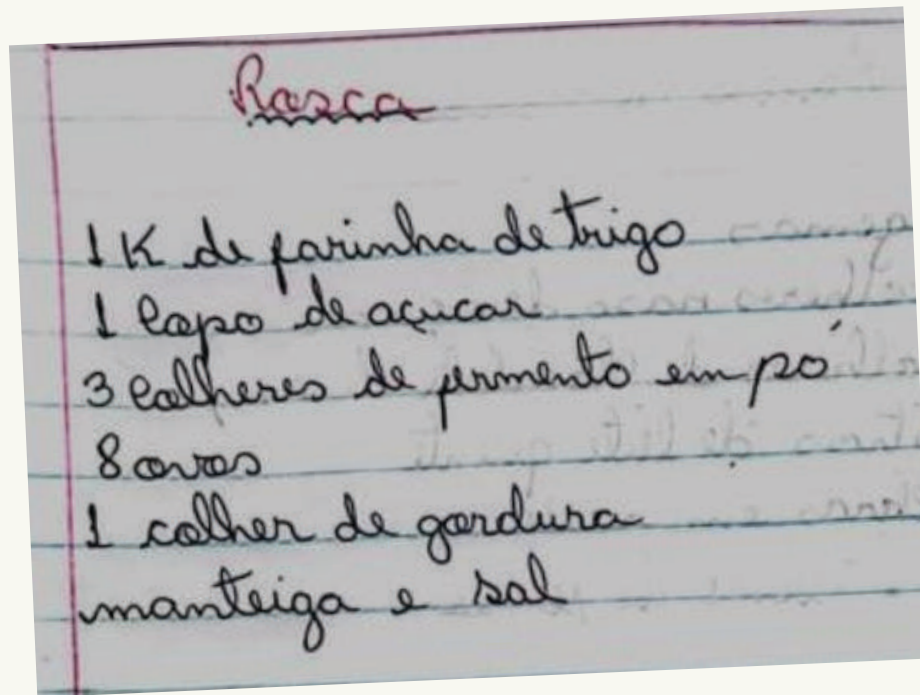 Rosca
1 K de farinha de trigo
1 copo de açucar
3 colheres de fermento em pó
8 ovos
1 colher de gordura
manteiga e sal